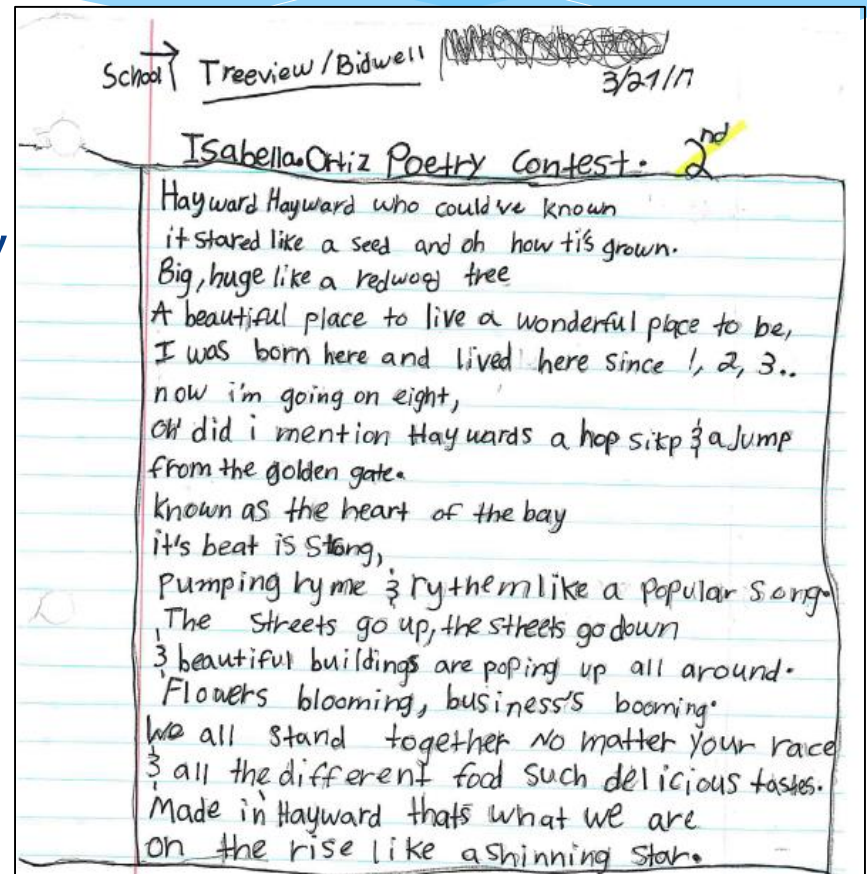 School Treeview/Bidwell
3/21/17
Isabella Ortiz Poetry Contest. 2nd
Hayward Hayward who could've known
it stared like a seed and oh how ti's grown.
Big, huge like a redwood tree
A beautiful place to live a wonderful place to be,
I was born here and lived here since 1, 2, 3..
now i'm going on eight,
oh did i mention Haywards a hop sikp & a Jump
from the golden gate.
known as the heart of the bay
it's beat is Stong,
pumping ryme & rythem like a popular song.
The streets go up, the streets go down
& beautiful buildings are poping up all around.
Flowers blooming, business's booming.
We all stand together no matter your race
& all the different food such delicious tastes.
Made in Hayward thats what we are
on the rise like a shinning star.